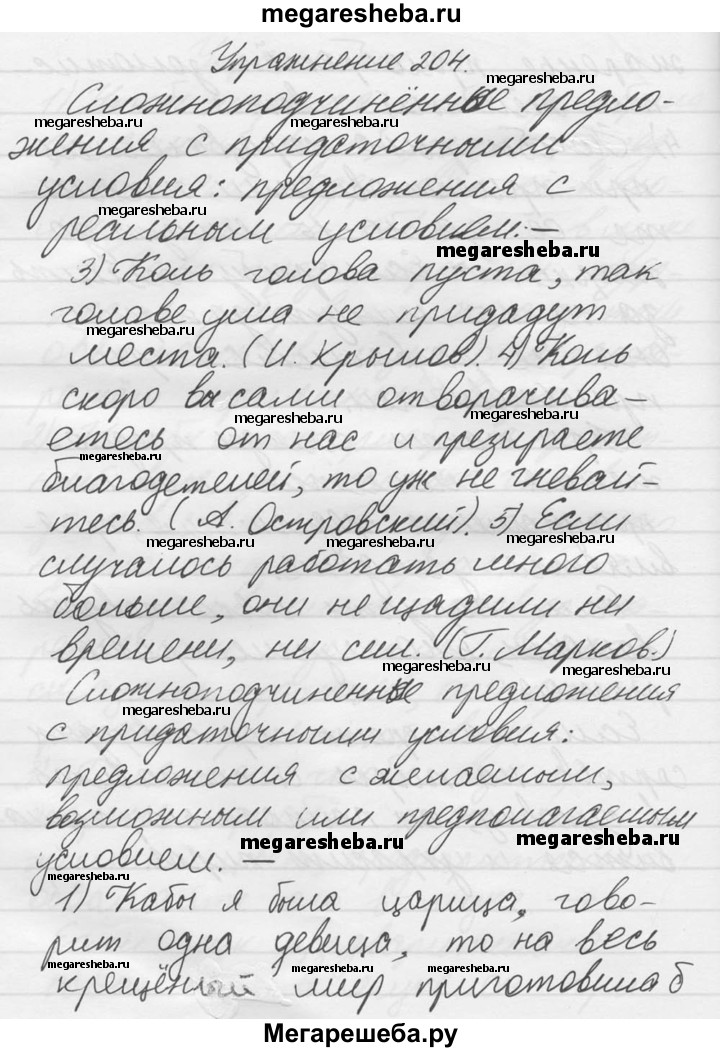 megaresheba.ru
Упражнение 204.
Сложноподчинённые предло-
megaresheba.ru
megaresheba.ru
megaresheba.ru
жения с придаточными
условия: предложения с
megaresheba.ru
реальным условием. —
megaresheba.ru
3) Коль голова пуста, так
голове ума не придадут
megaresheba.ru
места. (И. Крылов). 4) Коль
скоро вы сами отворачива-
megaresheba.ru
megaresheba.ru
етесь от нас и презираете
megaresheba.ru
благодетелей, то уж не гневай-
тесь. (А. Островский). 5) Если
megaresheba.ru
megaresheba.ru
случалось работать много
больше, они не щадили ни
времени, ни сил. (Г. Марков.)
megaresheba.ru
megaresheba.ru
Сложноподчиненные предложения
megaresheba.ru
с придаточными условия:
предложения с желаемым,
возможным или предполагаемым
megaresheba.ru
megaresheba.ru
условием. —
megaresheba.ru
1) Кабы я была царица, гово-
рит одна девица, то на весь
megaresheba.ru
megaresheba.ru
megaresheba.ru
крещёный мир приготовила б
Мегарешеба.ру